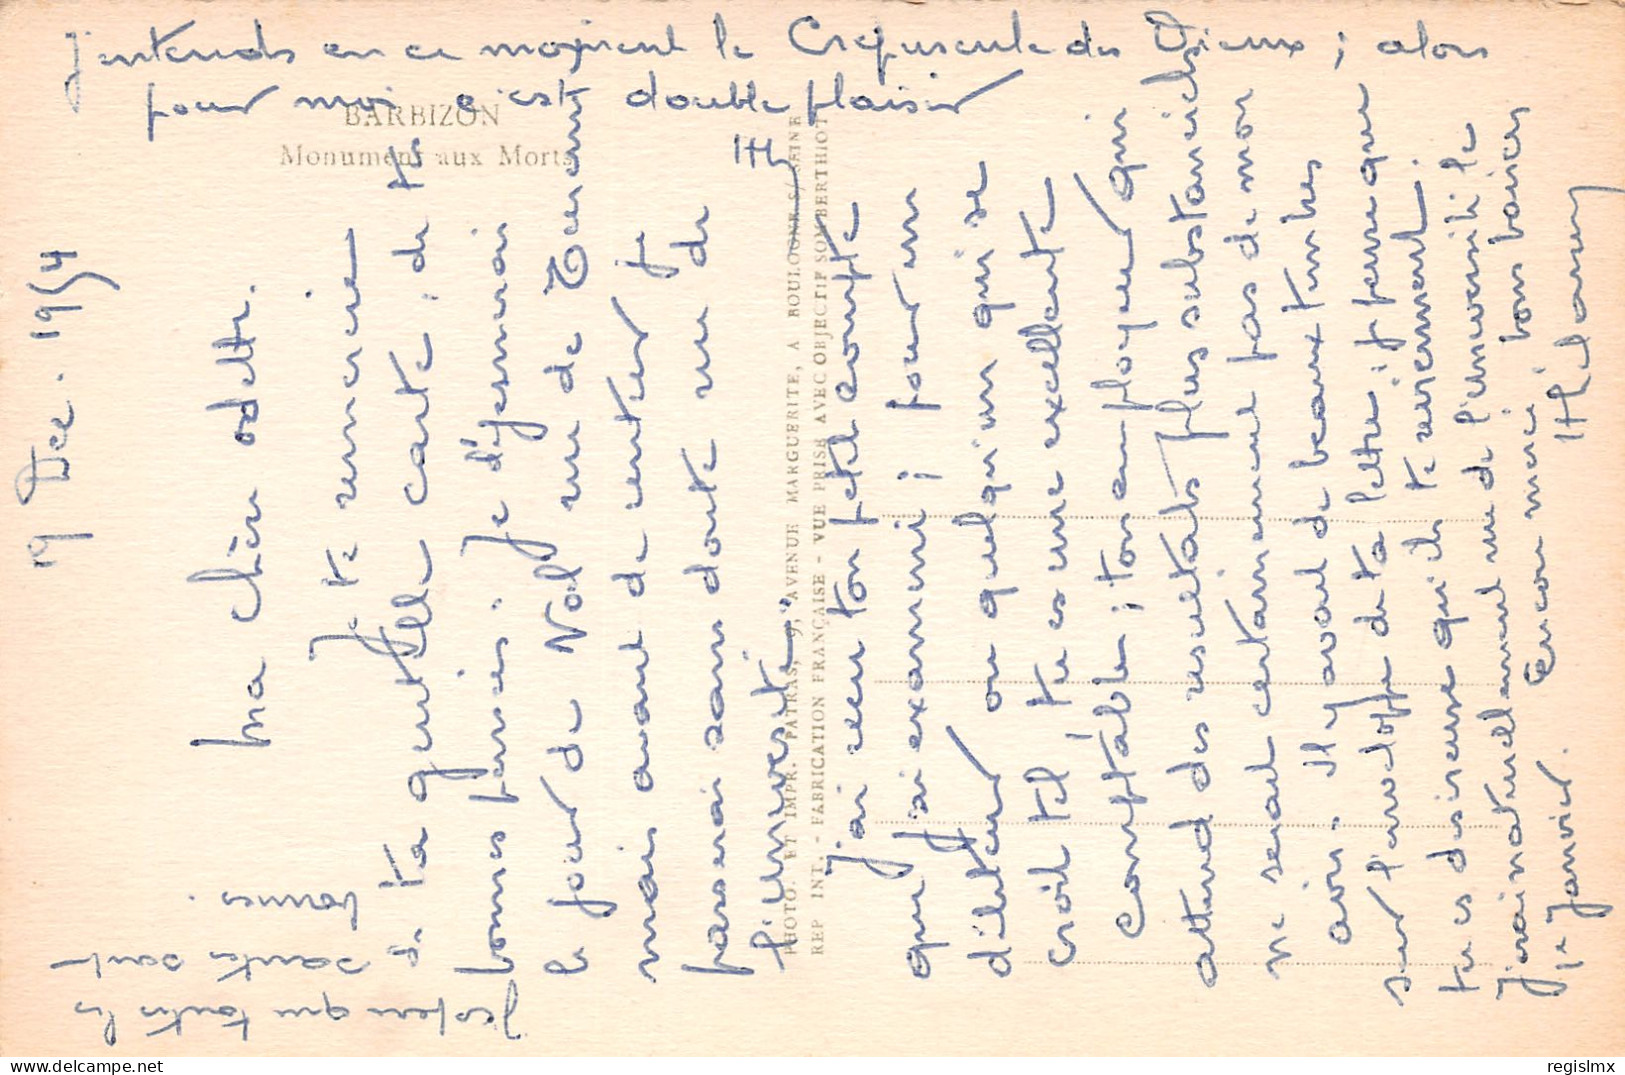 J'entends en ce moment le Crépuscule des Dieux ; alors
pour moi c'est double plaisir
HL
BARBIZON
Monument aux Morts
PHOTO. ET IMPR. PATRAS, 9, AVENUE MARGUERITE, A BOULOGNE S/ SEINE
REP INT. - FABRICATION FRANÇAISE - VUE PRISE AVEC OBJECTIF SOM BERTHIOT
19 Dec. 1954
Ma chère Odette.
Je te remercie
de ta gentille carte, de tes
bonnes pensées. Je déjeunerai
le jour de Noël rue de
mais avant de rentrer je
passerai sans doute rue de
l'université.
J'ai reçu ton petit compte
que j'ai examiné ; pour un
débiteur ou quelqu'un qui se
croit tel, tu es une excellente
comptable ; ton employeur qui
attend des resultats plus substantiels
ne serait certainement pas de mon
avis. Il y avait de beaux timbres
sur l'enveloppe de ta lettre ; je pense que
tu es desireuse qu'ils te reviennent.
J'irai naturellement rue de l'université le
1er Janvier. Encore merci bons baisers
J'espère que toutes les
santés sont
bonnes.
regislmx